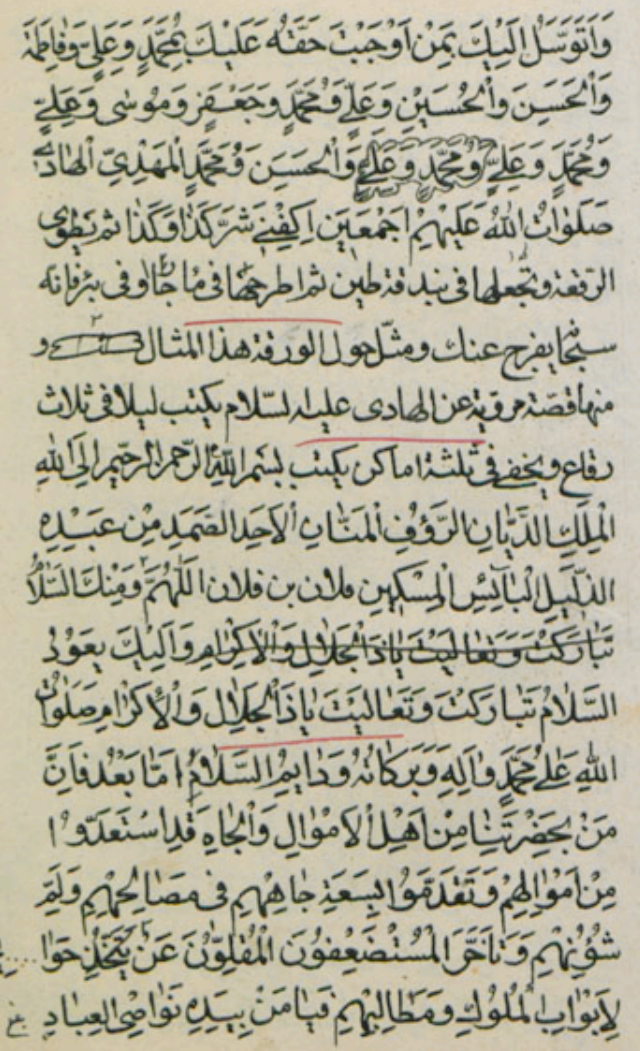 وَاَتَوَسَّلُ اِلَيْكَ بِمَنْ اَوْجَبْتَ حَقَّهُ عَلَيْكَ بِمُحَمَّدٍ وَعَلِيٍّ وَفَاطِمَةَ
وَالْحَسَنِ وَالْحُسَيْنِ وَعَلِيٍّ وَمُحَمَّدٍ وَجَعْفَرٍ وَمُوسٰى وَعَلِيٍّ
وَمُحَمَّدٍ وَعَلِيٍّ وَمُحَمَّدٍ وَعَلِيٍّ وَالْحَسَنِ وَمُحَمَّدٍ الْمَهْدِيِّ الْهَادِي
صَلَوٰاتُ اللّٰهِ عَلَيْهِمْ اَجْمَعِيْنَ اِكْفِنِي شَرَّ كَذَا وَكَذَا ثم تطوى
الرقعة وتجعلها فى بندقة طين ثم اطرحها فى ماء جار او فى بئر فانه
سبحانه يفرج عنك ومثّل حول الورقة هذا المثال و
منها قصّة مروّية عن الهادى عليه السّلام يكتب ليلا فى ثلاث
رقاع ويخفى فى ثلثة اماكن يكتب بِسْمِ اللّٰهِ الرَّحْمٰنِ الرَّحِيْمِ اِلَى اللّٰهِ
الْمَلِكِ الدَّيَّانِ الرَّؤُفِ الْمَنَّانِ الْاَحَدِ الصَّمَدِ مِنْ عَبْدِهِ
الذَّلِيْلِ الْبَائِسِ الْمِسْكِيْنِ فلان بن فلان اَللّٰهُمَّ وَمِنْكَ السَّلَامُ
تَبَارَكْتَ وَتَعَالَيْتَ يَاذَا الْجَلَالِ وَالْاِكْرَامِ وَاِلَيْكَ يَعُوْدُ
السَّلَامُ تَبَارَكْتَ وَتَعَالَيْتَ يَاذَا الْجَلَالِ وَالْاِكْرَامِ صَلَوَاتُ
اللّٰهِ عَلٰى مُحَمَّدٍ وَاٰلِهِ وَبَرَكَاتُهُ وَدَايِمُ السَّلَامُ اَمَّا بَعْدُ فَاِنَّ
مَنْ بِحَضْرَتِنَا مِنْ اَهْلِ الْاَمْوَالِ وَالْجَاهِ قَدِ اسْتَعَدُّوْا
مِنْ اَمْوَالِهِمْ وَتَقَدَّمُوْا بِسَعَةِ جَاهِهِمْ فِى مَصَالِحِهِمْ وَلَمِّ
شُؤُنِهِمْ وَتَاَخَّرَ الْمُسْتَضْعَفُوْنَ الْمُقِلُّوْنَ عَنْ
لِاَبْوَابِ الْمُلُوْكِ وَمَطَالِبِهِمْ فَيَا مَنْ بِيَدِهِ نَوَاصِى الْعِبَادِ